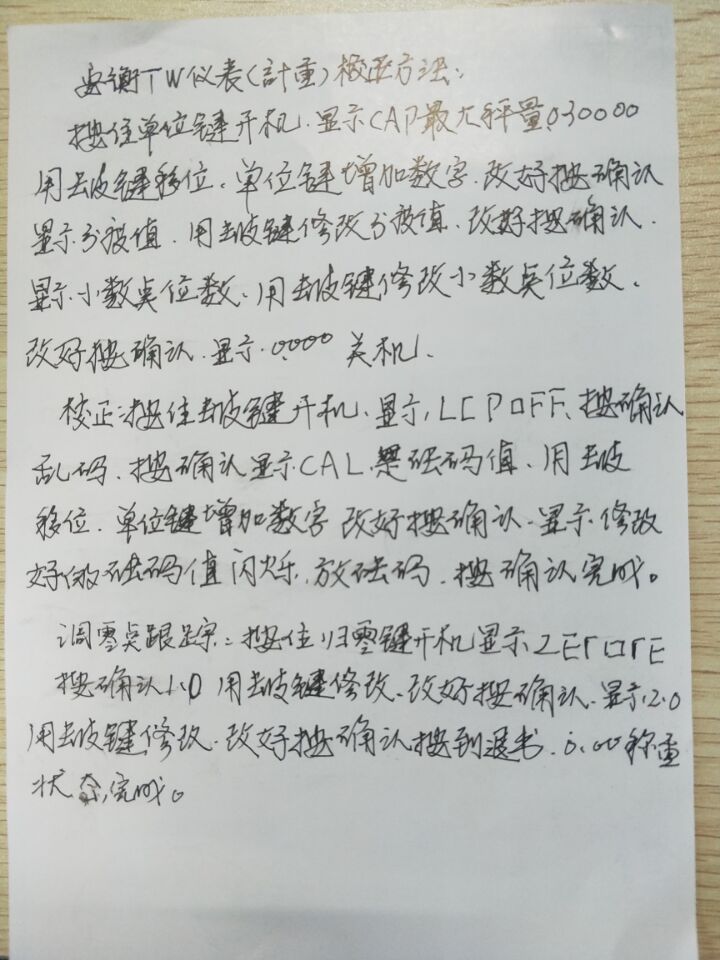 安衡TW仪表(計重)校正方法:
按住单位键开机.显示CAP最大秤量030000
用去皮键移位.单位键增加数字.改好按确认
显示分被值.用去皮键修改分被值.改好按确认.
显示小数点位数.用去皮键修改小数点位数.
改好按确认.显示.0.000 关机.
校正:按住去皮键开机.显示.LCPOFF.按确认
乱码.按确认显示CAL.是砝码值.用去皮
移位.单位键增加数字 改好按确认.显示修改
好的砝码值闪烁.放砝码.按确认完成。
调零点跟踪:按住归零键开机显示ZErotE
按确认1.0 用去皮键修改.改好按确认.显示.2.0
用去皮键修改.改好按确认按到退出.0.00称重
状态,完成。